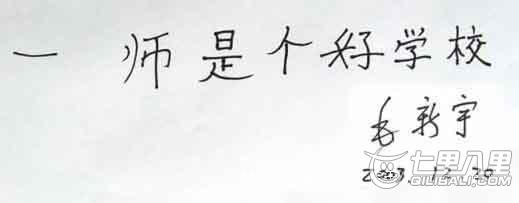 一师是个好学校
毛新宇
2003.12.20
七里八里
QILIBALI.COM